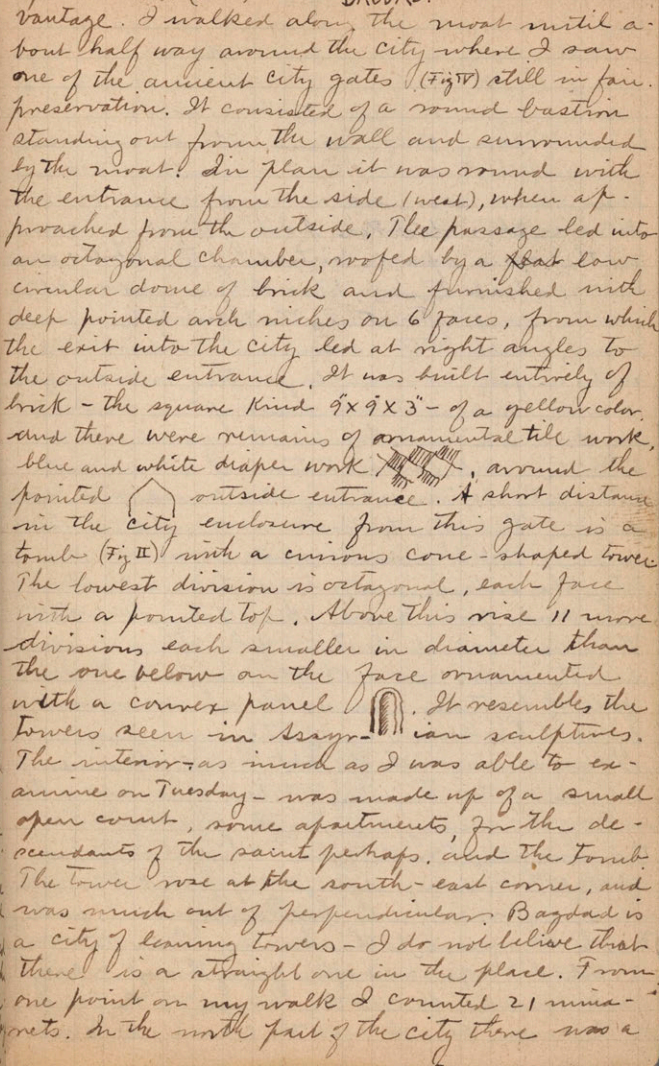 vantage. I walked along the moat until a-
bout half way around the city where I saw
one of the ancient city gates (Fig IV) still in fair
preservation. It consisted of a round bastion
standing out from the wall and surrounded
by the moat. In plan it was round with
the entrance from the side (west), when ap-
proached from the outside. The passage led into
an octagonal chamber, roofed by a flat low
circular dome of brick and furnished with
deep pointed arch niches on 6 faces, from which
the exit into the city led at right angles to
the outside entrance. It was built entirely of
brick - the square kind 9"x9"x3" - of a yellow color,
and there were remains of ornamental tile work,
blue and white diaper work , around the
pointed outside entrance. A short distance
in the city enclosure from this gate is a
tomb (Fig II) with a curious cone-shaped tower.
The lowest division is octagonal, each face
with a pointed top. Above this rise 11 more
divisions each smaller in diameter than
the one below on the face ornamented
with a convex panel . It resembles the
towers seen in Assyr- ian sculptures.
The interior - as much as I was able to ex-
amine on Tuesday - was made up of a small
open court, some apartments, for the de-
scendants of the saint perhaps, and the tomb.
The tower rose at the south-east corner, and
was much out of perpendicular. Bagdad is
a city of leaning towers - I do not belive that
there is a straight one in the place. From
one point on my walk I counted 21 mina-
rets. In the north part of the city there was a